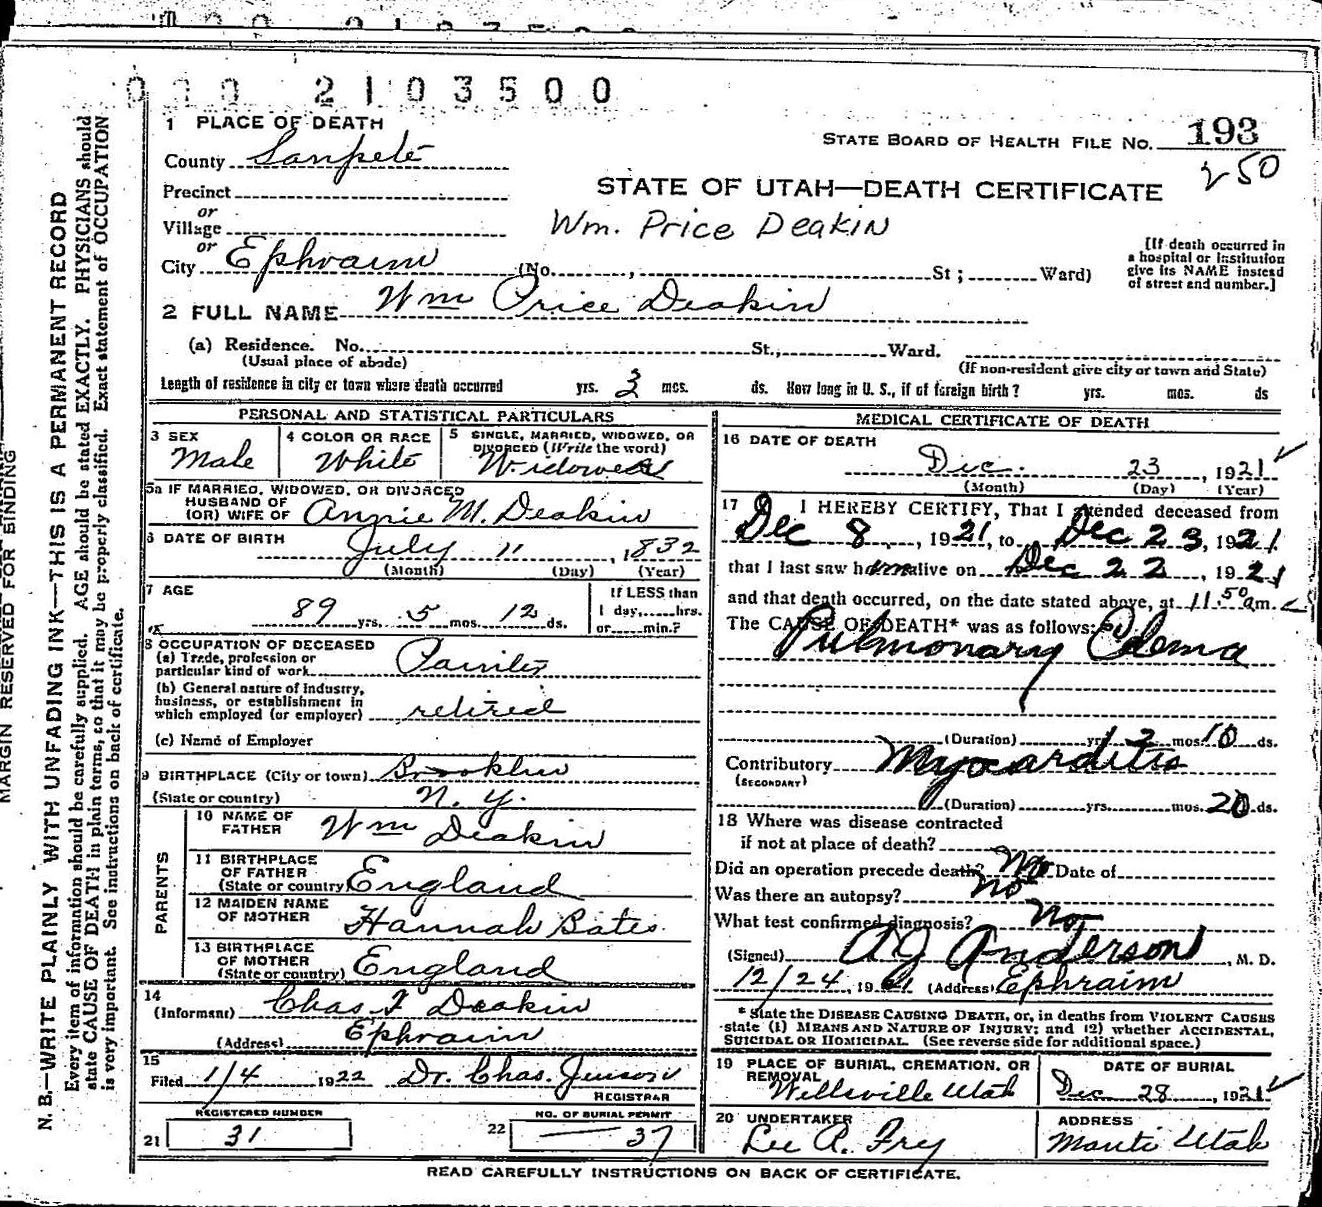 000 2103500
1 PLACE OF DEATH
STATE BOARD OF HEALTH FILE NO. 193
250
County Sanpete
STATE OF UTAH—DEATH CERTIFICATE
Precinct
or
Village
Wm. Price Deakin
or
City Ephraim (No. , St ; Ward)
[If death occurred in
a hospital or institution
give its NAME instead
of street and number.]
2 FULL NAME Wm Price Deakin
(a) Residence. No. St., Ward.
(Usual place of abode) (If non-resident give city or town and State)
Length of residence in city or town where death occurred yrs. 3 mos. ds. How long in U. S., if of foreign birth? yrs. mos. ds
PERSONAL AND STATISTICAL PARTICULARS
3 SEX Male
4 COLOR OR RACE White
5 SINGLE, MARRIED, WIDOWED, OR
DIVORCED (Write the word)
Widowed
5a IF MARRIED, WIDOWED, OR DIVORCED
HUSBAND OF
(OR) WIFE OF Annie M. Deakin
6 DATE OF BIRTH July 11, 1832
(Month) (Day) (Year)
7 AGE 89 yrs. 5 mos. 12 ds.
If LESS than
1 day, hrs.
or min.?
8 OCCUPATION OF DECEASED
(a) Trade, profession or
particular kind of work Painter
(b) General nature of industry,
business, or establishment in
which employed (or employer) retired
(c) Name of Employer
9 BIRTHPLACE (City or town) Brooklin
(State or country) N. Y.
PARENTS
10 NAME OF
FATHER Wm Deakin
11 BIRTHPLACE
OF FATHER
(State or country) England
12 MAIDEN NAME
OF MOTHER Hannah Bates
13 BIRTHPLACE
OF MOTHER
(State or country) England
14
(Informant) Chas. Deakin
(Address) Ephraim
15
Filed 1/4 1922 Dr. Chas. Jenson
REGISTRAR
REGISTERED NUMBER
21 31
NO. OF BURIAL PERMIT
22 37
MEDICAL CERTIFICATE OF DEATH
16 DATE OF DEATH
Dec. 23, 1921
(Month) (Day) (Year)
17 I HEREBY CERTIFY, That I attended deceased from
Dec 8, 1921, to Dec 23, 1921
that I last saw him alive on Dec 22, 1921
and that death occurred, on the date stated above, at 11.50 am.
The CAUSE OF DEATH* was as follows:
Pulmonary Edema
(Duration) yrs. mos. 10 ds.
Contributory Myocarditis
(SECONDARY)
(Duration) yrs. mos. 20 ds.
18 Where was disease contracted
if not at place of death?
Did an operation precede death? No Date of
Was there an autopsy? no
What test confirmed diagnosis? No
(Signed) A J Anderson, M. D.
12/24, 1921 (Address) Ephraim
* State the DISEASE CAUSING DEATH, or, in deaths from VIOLENT CAUSES
state (1) MEANS AND NATURE OF INJURY; and (2) whether ACCIDENTAL,
SUICIDAL OR HOMICIDAL. (See reverse side for additional space.)
19 PLACE OF BURIAL, CREMATION, OR
REMOVAL
Wellsville Utah
DATE OF BURIAL
Dec 28, 1921
20 UNDERTAKER
Lee A. Fry
ADDRESS
Manti Utah
READ CAREFULLY INSTRUCTIONS ON BACK OF CERTIFICATE.
MARGIN RESERVED FOR BINDING
N. B.—WRITE PLAINLY WITH UNFADING INK—THIS IS A PERMANENT RECORD
Every item of information should be carefully supplied. AGE should be stated EXACTLY. PHYSICIANS should
state CAUSE OF DEATH in plain terms, so that it may be properly classified. Exact statement of OCCUPATION
is very important. See instructions on back of certificate.